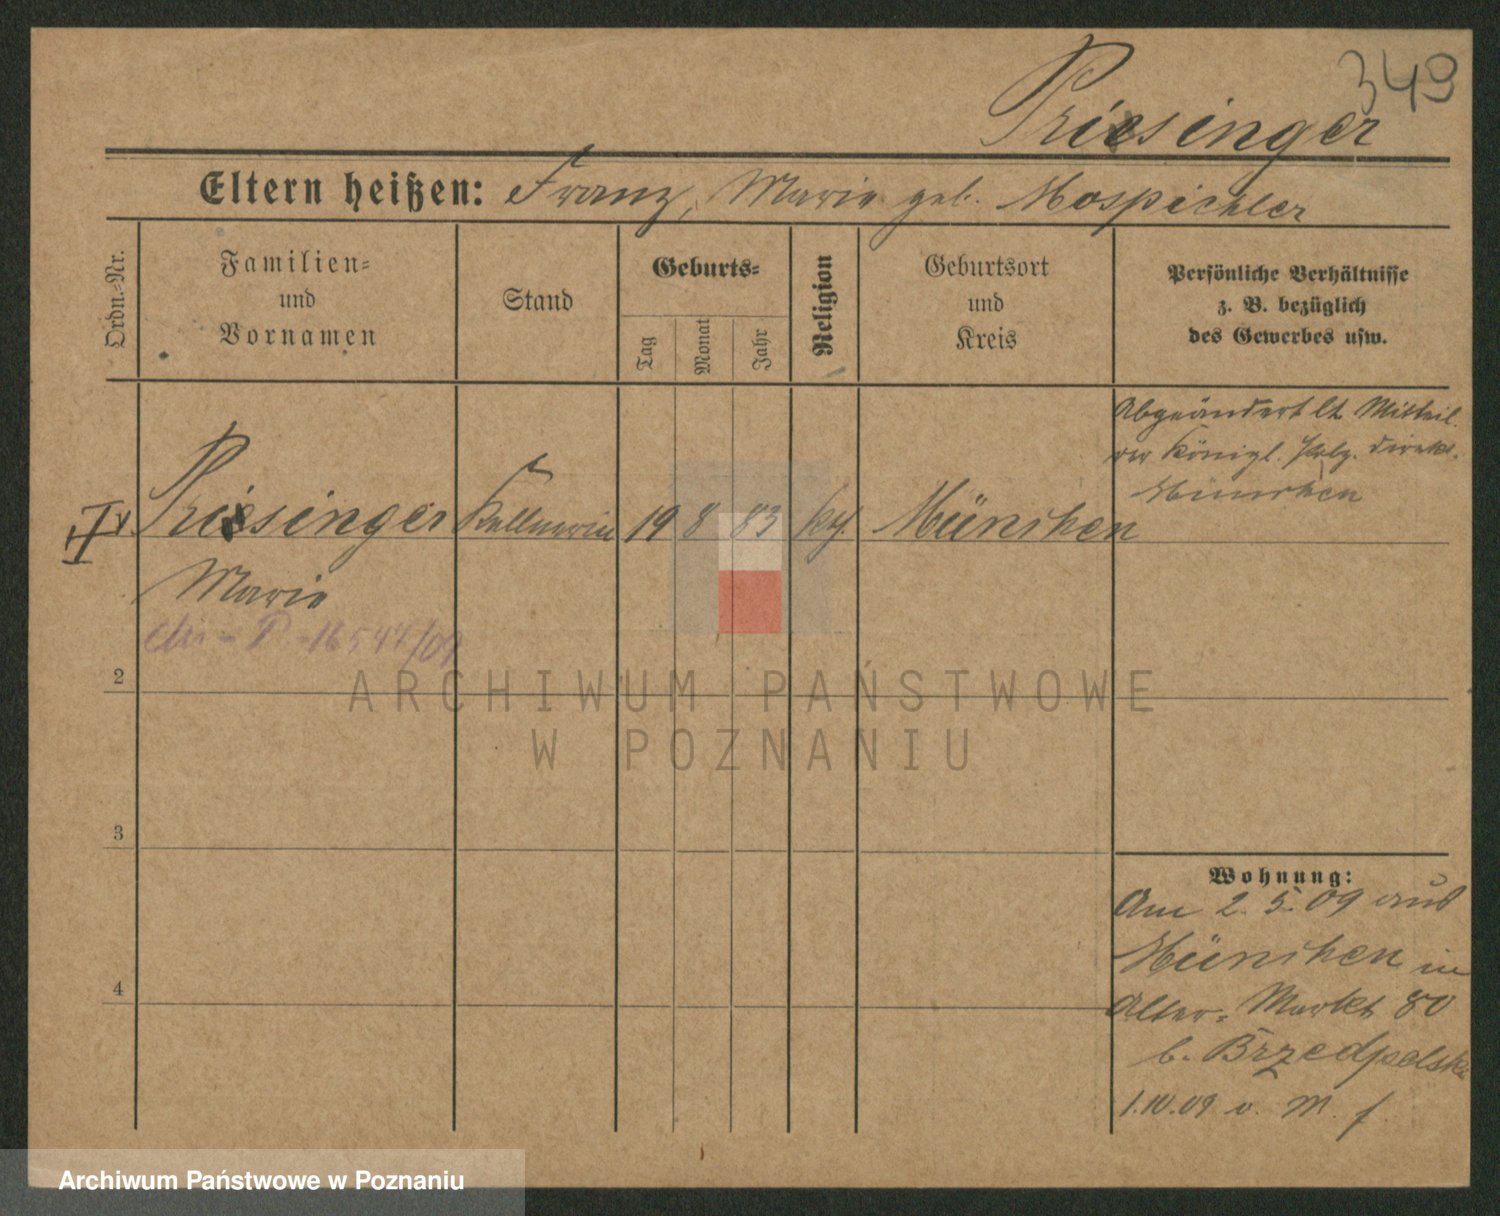 349
Priesinger
Eltern heißen: Franz, Marie geb. Mospichler
Ordn.-Nr.
Familien- und Vornamen
Stand
Geburts-
Tag
Monat
Jahr
Religion
Geburtsort und Kreis
Persönliche Verhältnisse
z. B. bezüglich
des Gewerbes usw.
Abgeändert lt Mitteil.
der Königl. Polz. Direkt.
München
Priesinger Kellnerin 19 8 83 kth. München
Marie
16544/09
2
ARCHIWUM PAŃSTWOWE
W POZNANIU
3
Wohnung:
Am 2. 5. 09 aus
München in
Alter-Markt 80
b.
4
1.10.09 v. M.
Archiwum Państwowe w Poznaniu